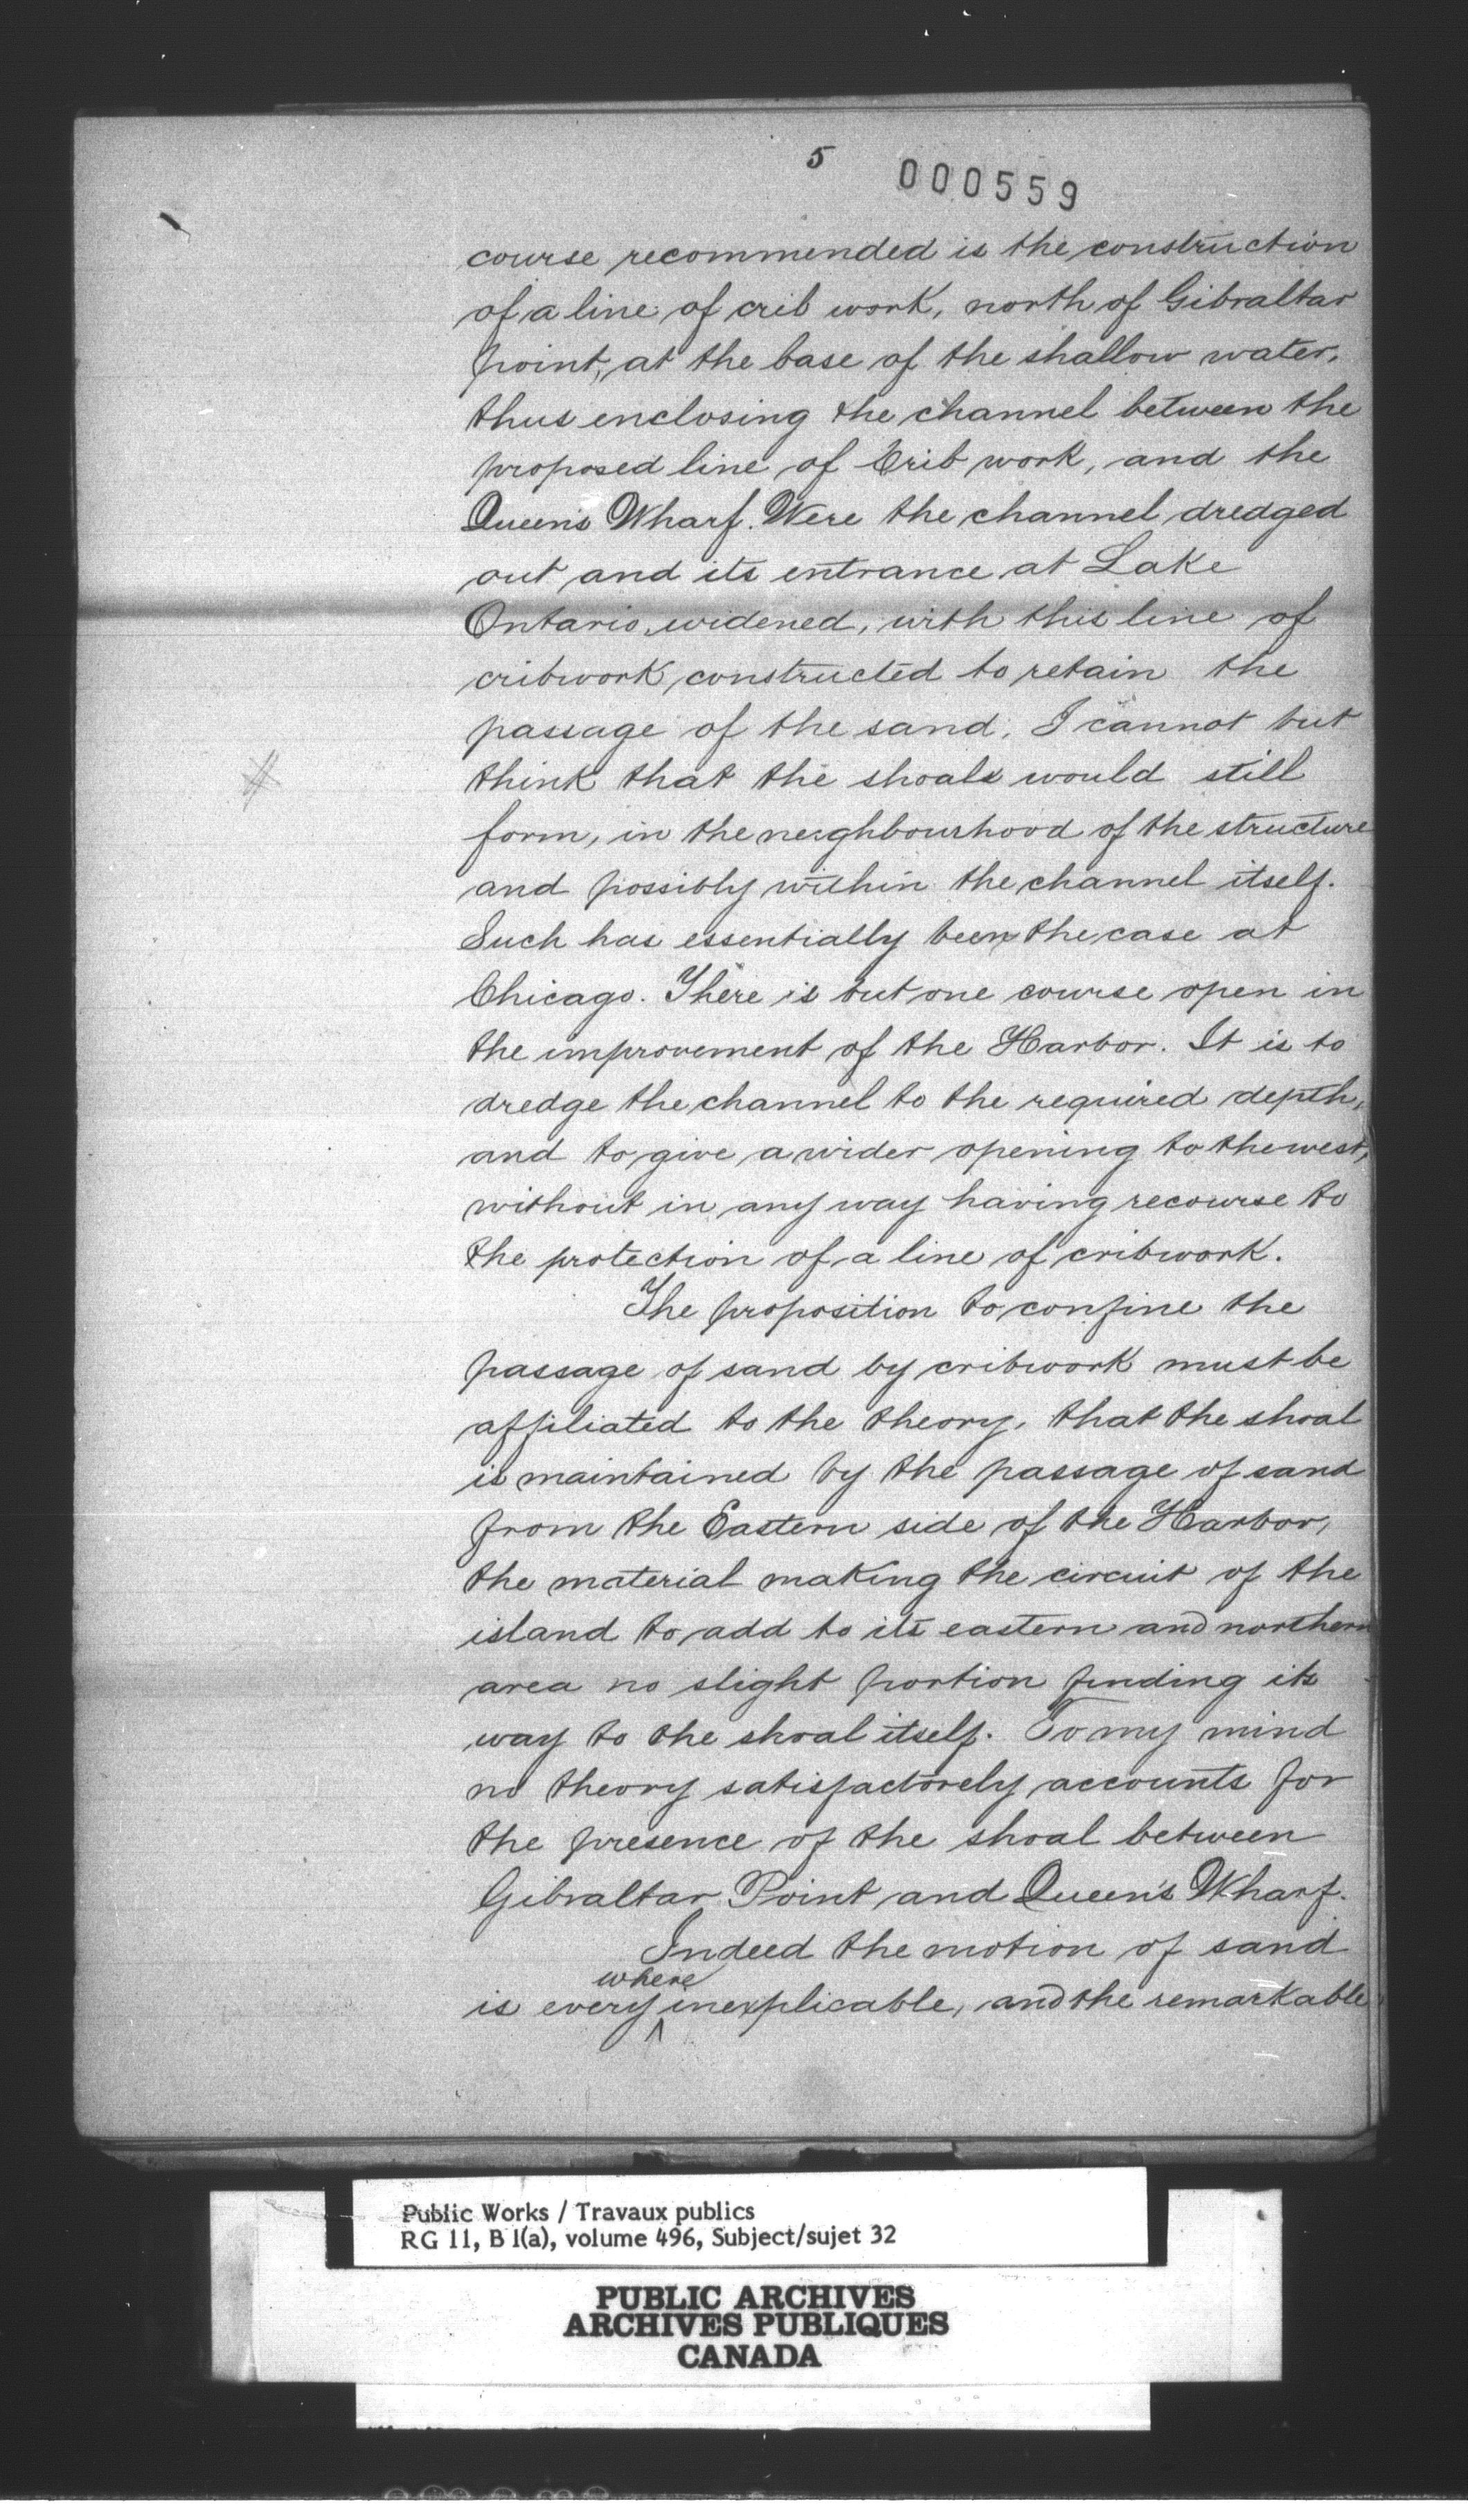 5 000559
course recommended is the construction
of a line of crib work, north of Gibraltar
point, at the base of the shallow water,
thus enclosing the channel between the
proposed line of Crib work, and the
Queen's Wharf. Were the channel dredged
out and its entrance at Lake
Ontario, widened, with this line of
cribwork constructed to retain the
passage of the sand, I cannot but
think that the shoals would still
form, in the neighbourhood of the structure
and possibly within the channel itself.
Such has essentially been the case at
Chicago. There is but one course open in
the improvement of the Harbor. It is to
dredge the channel to the required depth,
and to give a wider opening to the west,
without in any way having recourse to
the protection of a line of cribwork.
The proposition to confine the
passage of sand by cribwork must be
affiliated to the theory, that the shoal
is maintained by the passage of sand
from the Eastern side of the Harbor,
the material making the circuit of the
island to add to its eastern and northern
area no slight portion finding its
way to the shoal itself. To my mind
no theory satisfactorely accounts for
the presence of the shoal between
Gibraltar Point and Queen's Wharf.
Indeed the motion of sand
where
is every inexplicable, and the remarkable
Public Works / Travaux publics
RG 11, B 1(a), volume 496, Subject/sujet 32
PUBLIC ARCHIVES
ARCHIVES PUBLIQUES
CANADA